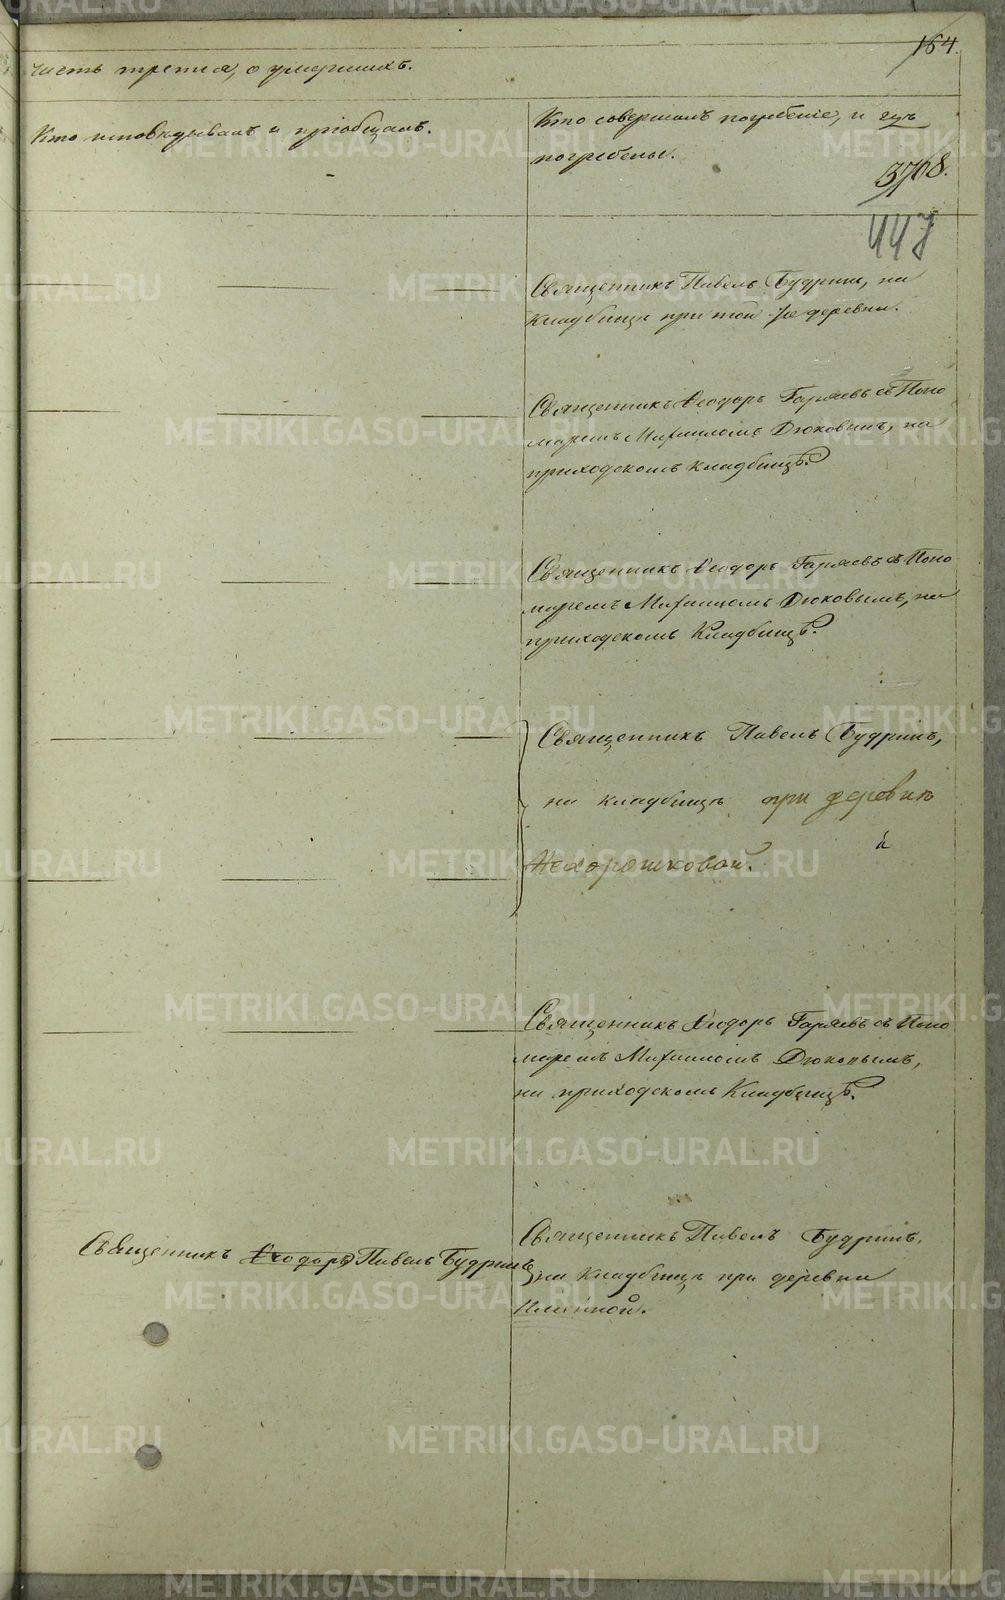 164.
часть третія, о умершихъ.
Кто исповѣдывалъ и пріобщалъ.
Кто совершалъ погребеніе, и гдѣ
погребены.
3768.
447
Священникъ Павелъ Будринъ, на
кладбищѣ при той же деревни.
Священникъ Ѳеодоръ Гаряевъ съ Поно
маремъ Михаиломъ Дюковымъ, на
приходскомъ кладбищѣ.
Священникъ Ѳеодоръ Гаряевъ съ Поно
маремъ Михаиломъ Дюковымъ, на
приходскомъ Кладбищѣ.
Священникъ Павелъ Будринъ,
на кладбищѣ при деревнѣ
Нехорошковой.
Священникъ Ѳеодоръ Гаряевъ съ Поно
маремъ Михаиломъ Дюковымъ,
на приходскомъ Кладбищѣ.
Священникъ Ѳеодоръ Павелъ Будринъ
Священникъ Павелъ Будринъ,
на Кладбищѣ при деревни
METRIKI.GASO-URAL.RU